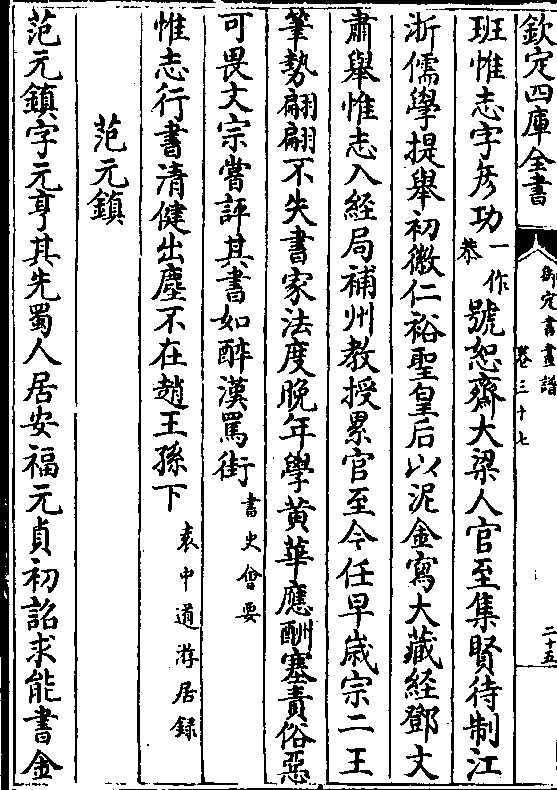 欽定四庫全書
御定書畫譜
卷三十七
二十五
班惟志字彦功一作恭號恕齋大梁人官至集賢待制江
浙儒學提舉初徽仁裕聖皇后以泥金寫大藏經鄧文
肅舉惟志入經局補州教授累官至今任早歲宗二王
筆勢翩翩不失書家法度晚年學黄華應酬塞責俗惡
可畏文宗嘗評其書如醉漢罵街書史會要
惟志行書清健出塵不在趙王孫下袁中道游居録
范元鎮
范元鎮字元亨其先蜀人居安福元貞初詔求能書金